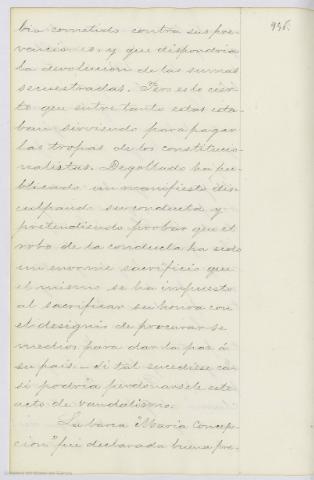 936.
bio cometido contra sus pro-
vincias, y que dispondria
la devolucion de las sumas
secuestradas. Pero es lo cier-
to que entre tanto estas esta-
ban sirviendo para pagar
las tropas de los constitucio-
nalistas. Degollado ha pu-
blicado un manifiesto dis-
culpando su conducta y
pretendiendo probar que el
robo de la conducta ha sido
un enorme sacrificio que
el mismo se ha impuesto
al sacrificar su honra con
el designio de procurarse
medios para dar la paz á
su pais. - Si tal sucediese ca-
si podria perdonarsele este
acto de vandalismo.
La barca "Maria Concep-
cion" fué declarada buena pre-